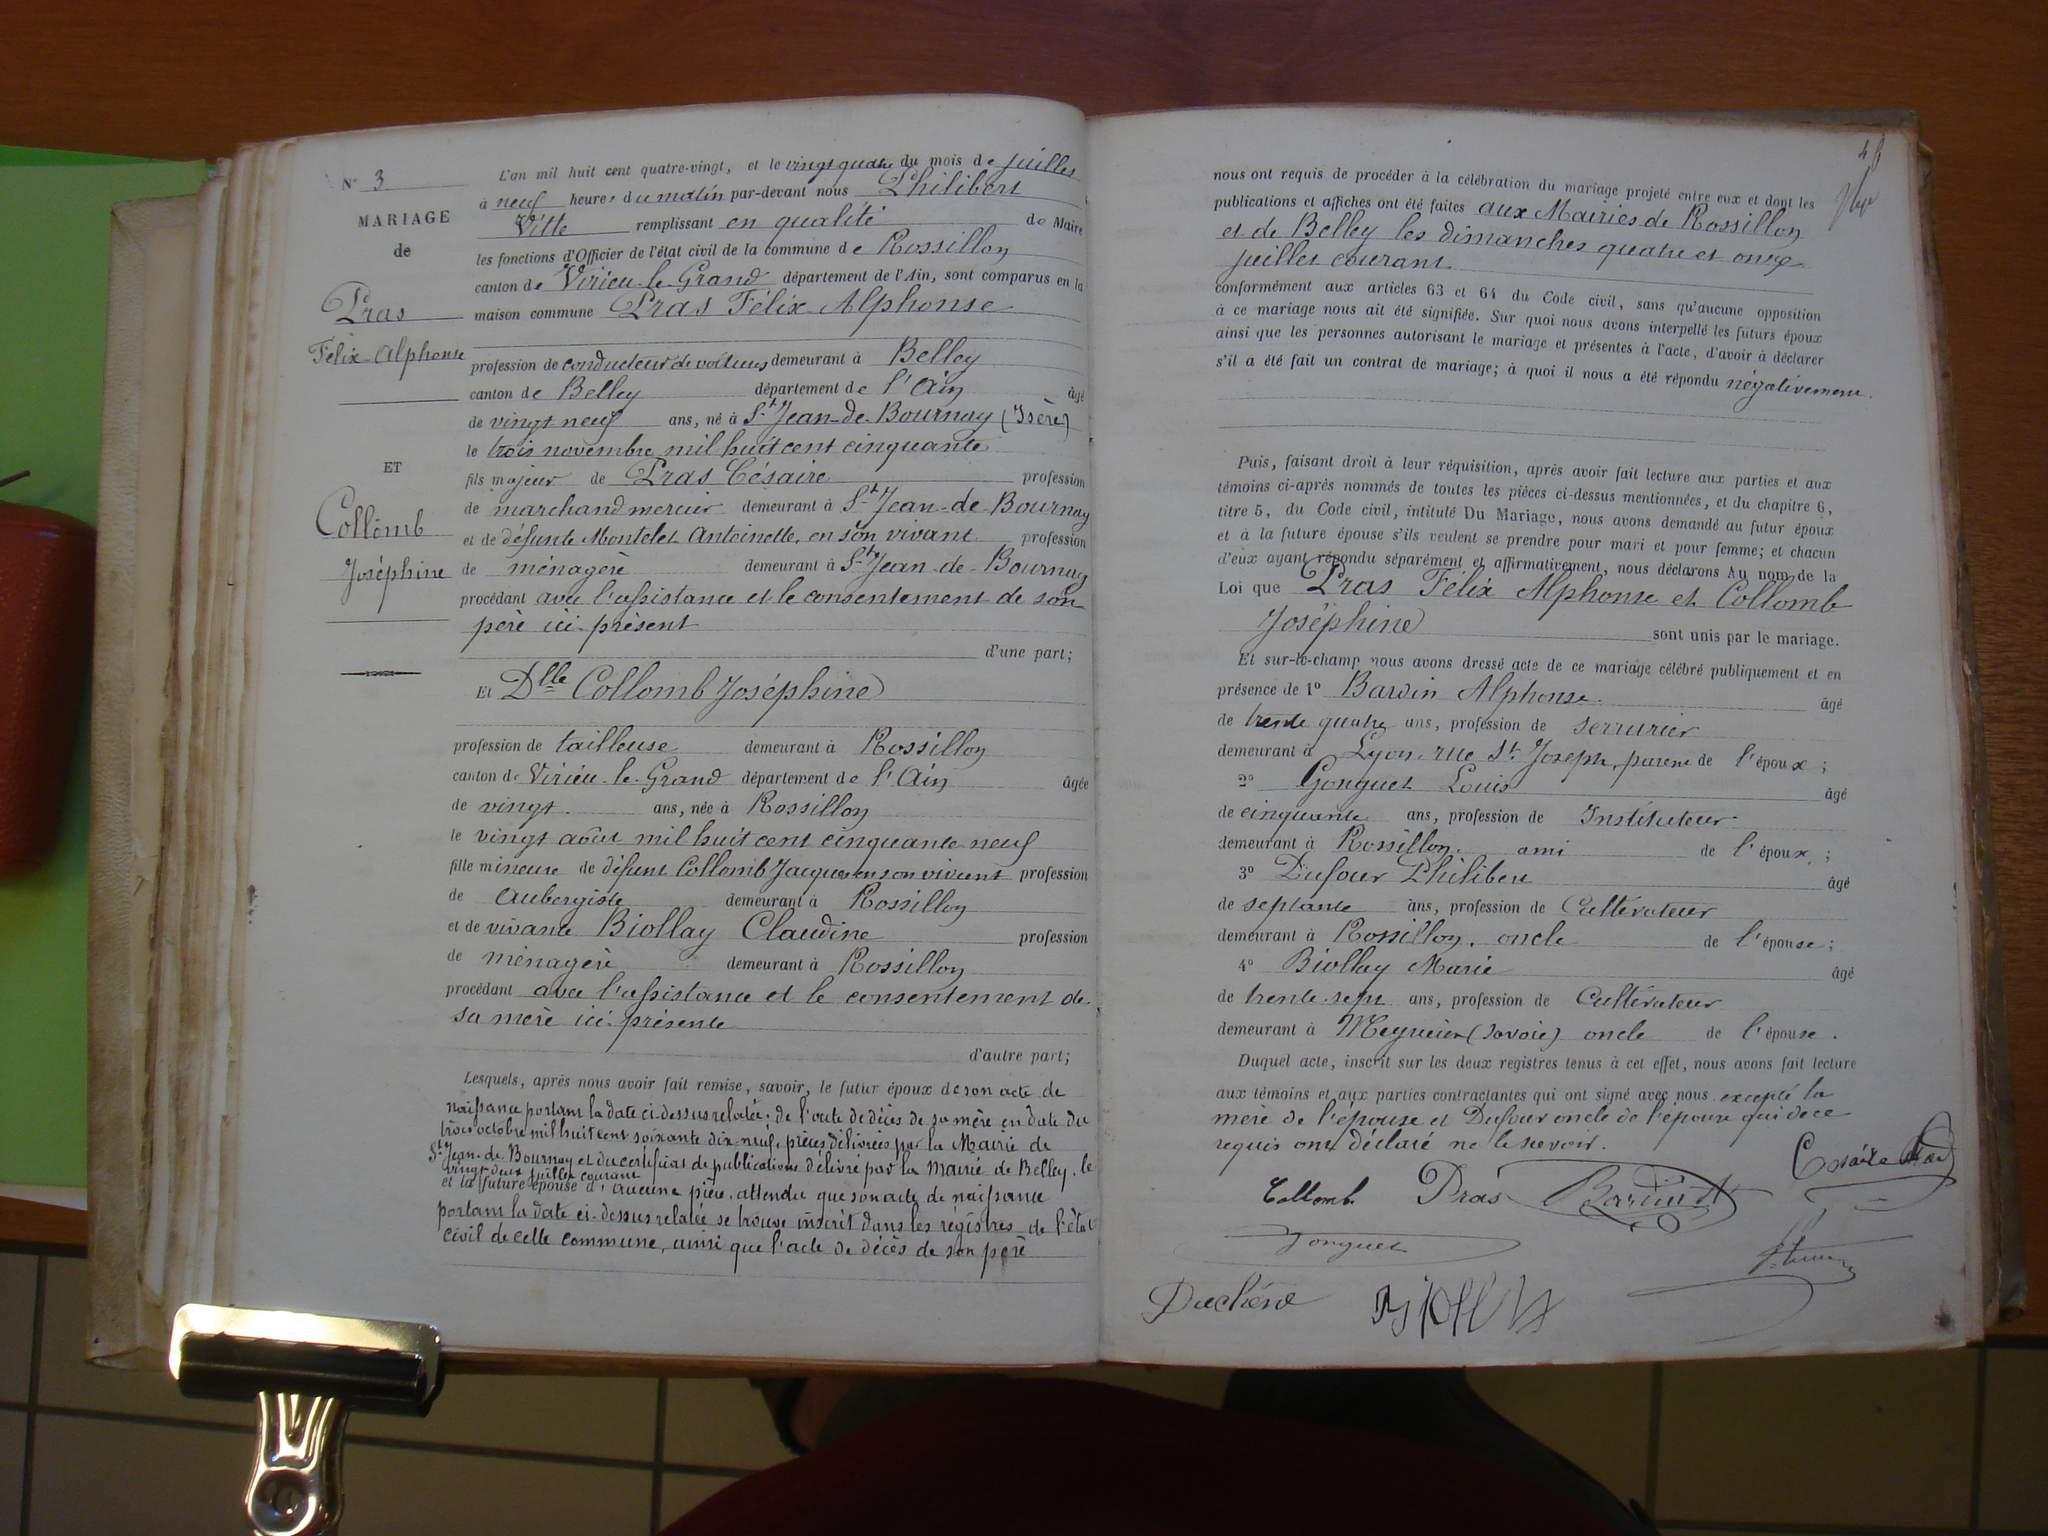 N° 3
MARIAGE
de
Pras
Félix Alphonse
ET
Collomb
Joséphine
L'an mil huit cent quatre-vingt, et le vingt quatre du mois de juillet
à neuf heures du matin par-devant nous Philibert
Vitte remplissant en qualité de Maire
les fonctions d'Officier de l'état civil de la commune de Rossillon
canton de Virieu-le-Grand département de l'Ain, sont comparus en la
maison commune Pras Félix Alphonse
profession de conducteur de voitures demeurant à Belley
canton de Belley département de l'Ain âgé
de vingt neuf ans, né à St Jean-de-Bournay (Isère)
le trois novembre mil huit cent cinquante
fils majeur de Pras Césaire profession
de marchand mercier demeurant à St Jean-de-Bournay
et de défunte Montelet Antoinette, en son vivant profession
de ménagère demeurant à St Jean-de-Bournay
procédant avec l'assistance et le consentement de son
père ici présent
d'une part;
Et Dlle Collomb Joséphine
profession de tailleuse demeurant à Rossillon
canton de Virieu-le-Grand département de l'Ain âgée
de vingt ans, née à Rossillon
le vingt août mil huit cent cinquante neuf
fille mineure de défunt Collomb Jacques en son vivant profession
de Aubergiste demeurant à Rossillon
et de vivante Biollay Claudine profession
de ménagère demeurant à Rossillon
procédant avec l'assistance et le consentement de
sa mère ici présente
d'autre part;
Lesquels, après nous avoir fait remise, savoir, le futur époux de son acte de
naissance portant la date ci-dessus relatée; de l'acte de décès de sa mère en date du
trois octobre mil huit cent soixante dix-neuf, pièces délivrées par la Mairie de
St Jean-de-Bournay et du certificat de publications délivré par la Mairie de Belley, le
vingt-deux juillet courant
et la future épouse d'aucune pièce, attendu que son acte de naissance
portant la date ci-dessus relatée se trouve inscrit dans les régistres de l'état
civil de cette commune, ainsi que l'acte de décès de son père
nous ont requis de procéder à la célébration du mariage projeté entre eux et dont les
publications et affiches ont été faites aux Mairies de Rossillon
et de Belley les dimanches quatre et onze
juillet courant
conformément aux articles 63 et 64 du Code civil, sans qu'aucune opposition
à ce mariage nous ait été signifiée. Sur quoi nous avons interpellé les futurs époux
ainsi que les personnes autorisant le mariage et présentes à l'acte, d'avoir à déclarer
s'il a été fait un contrat de mariage; à quoi il nous a été répondu négativement.
Puis, faisant droit à leur réquisition, après avoir fait lecture aux parties et aux
témoins ci-après nommés de toutes les pièces ci-dessus mentionnées, et du chapitre 6,
titre 5, du Code civil, intitulé Du Mariage, nous avons demandé au futur époux
et à la future épouse s'ils veulent se prendre pour mari et pour femme; et chacun
d'eux ayant répondu séparément et affirmativement, nous déclarons Au nom de la
Loi que Pras Félix Alphonse et Collomb
Joséphine sont unis par le mariage.
Et sur-le-champ nous avons dressé acte de ce mariage célébré publiquement et en
présence de 1° Bardin Alphonse âgé
de trente quatre ans, profession de serrurier
demeurant à Lyon, rue St Joseph, parent de l'époux;
2° Gonguet Louis âgé
de cinquante ans, profession de Instituteur
demeurant à Rossillon, ami de l'époux;
3° Dufour Philibert âgé
de septante ans, profession de Cultivateur
demeurant à Rossillon, oncle de l'épouse;
4° Biollay Marie âgé
de trente-sept ans, profession de Cultivateur
demeurant à (Savoie) oncle de l'épouse.
Duquel acte, inscrit sur les deux registres tenus à cet effet, nous avons fait lecture
aux témoins et aux parties contractantes qui ont signé avec nous excepté la
mère de l'épouse et Dufour oncle de l'épouse qui de ce
requis ont déclaré ne le savoir.
Césaire Pras
Collomb Pras Bardin
Gonguet
Duchêne